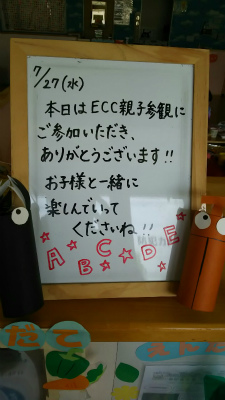 7/27(水)
本日はECC親子参観に
ご参加いただき、
ありがとうございます!!
お子様と一緒に
楽しんでいって
くださいね!!
A B C D E
だて